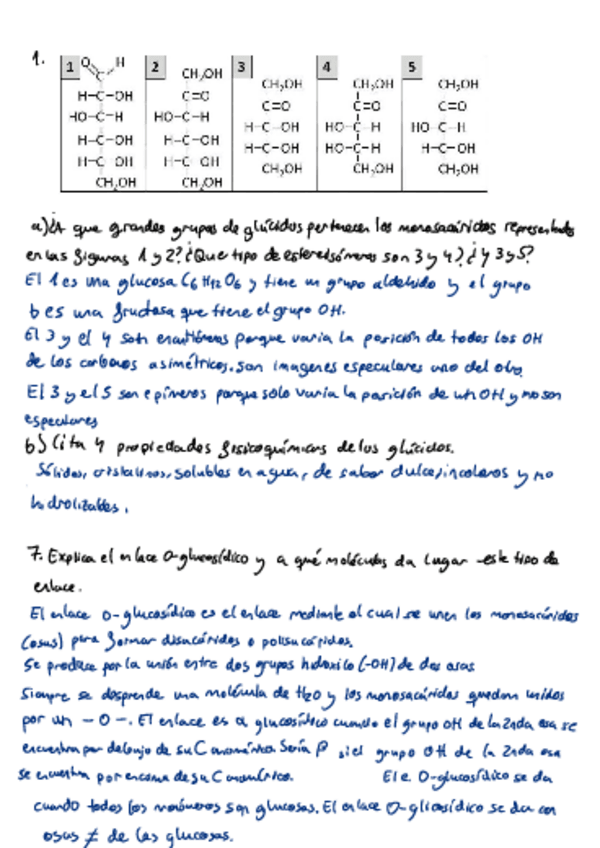 1.
1 2 3 4 5
O H CH2OH CH2OH CH2OH CH2OH
H-C-OH C=O C=O C=O C=O
HO-C-H HO-C-H H-C-OH HO-C-H HO-C-H
H-C-OH H-C-OH H-C-OH HO-C-H H-C-OH
H-C-OH H-C-OH CH2OH CH2OH CH2OH
CH2OH CH2OH
a) ¿A que grandes grupos de glúcidos pertenecen los monosacáridos representados
en las figuras 1 y 2? ¿Que tipo de estereoisómeros son 3 y 4? ¿Y 3 y 5?
El 1 es una glucosa C6H12O6 y tiene un grupo aldehido y el grupo
b es una fructosa que tiene el grupo OH.
El 3 y el 4 son enantiómeros porque varia la posición de todos los OH
de los carbonos asimétricos. Son imagenes especulares uno del otro
El 3 y el 5 son epímeros porque solo varia la posición de un OH y no son
especulares
b) Cita 4 propiedades fisicoquímicas de los glúcidos.
Sólidos, cristalinos, solubles en agua, de sabor dulce, incoloros y no
hidrolizables.
7. Explica el enlace O-glucosídico y a qué moléculas da lugar este tipo de
enlace.
El enlace O-glucosídico es el enlace mediante el cual se unen los monosacáridos
(osas) para formar disacáridos o polisacáridos.
Se produce por la unión entre dos grupos hidroxilo (-OH) de dos osas
Siempre se desprende una molécula de H2O y los monosacáridos quedan unidos
por un - O -. El enlace es α glucosídico cuando el grupo OH de la 2nda osa se
encuentra por debajo de su C anomérico. Sería β si el grupo OH de la 2nda osa
se encuentra por encima de su C anomérico. El e. O-glucosídico se da
cuando todos los monómeros son glucosas. El enlace O-glicosídico se da con
osas ≠ de las glucosas.